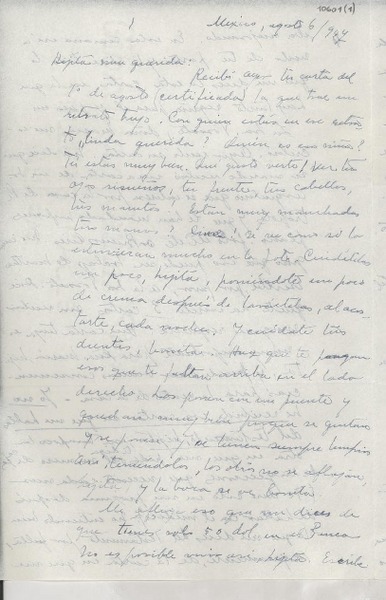 10601 (1)
1
Mexico, agosto 6/94
Hijita mia querida:
Recibí ayer tu carta del
1º de agosto (certificada) la que trae un
retrato tuyo. Con quien estas en ese retra-
to, linda querida? Quien es esa niña?
Tu estas muy bien. Que gusto verte! Ver tus
ojos risueños, tu frente, tus cabellos,
tus manitos. Estan muy manchadas
tus manos? Es como si lo
estuvieran mucho en la foto. Cuidatelas
un poco, hijita, poniéndote un poco
de crema después de lavártelas, al acos-
tarte, cada noche. Y cuídate tus
dientes, bonita. Haz que te pongan
esos que te faltan arriba en el lado
derecho. Los ponen en un puente y
quedan muy bien porque se quitan
y se ponen y se tienen siempre limpios
así; teniéndolos, los otros no se aflojan,
y la boca se ve bonita.
Me aflige eso que me dices de
que tienes solo 50 dol. en el Banco
No es posible vivir así hijita. Escribe